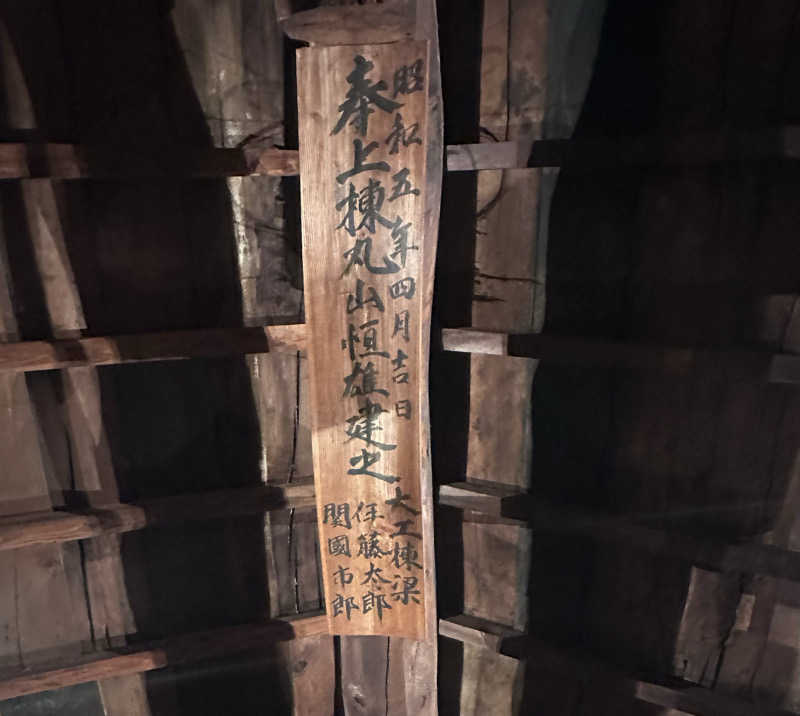 昭和五年四月吉日
奉上棟丸山恒雄建之
大工棟梁
伊藤太郎
関國市郎